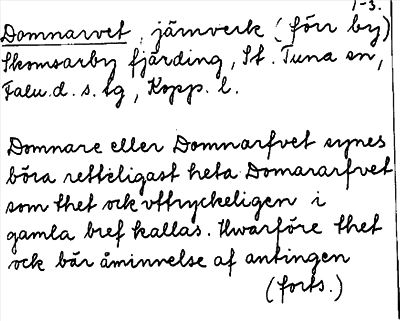 1-3.
Domnarvet, järnverk (förr by)
Skomsarby fjärding, St. Tuna sn,
Falu. d. s. lg, Kopp. l.
Domnare eller Domnarfvet synes
böra rettëligast heta Domararfvet
som thet ock vttryckeligen i
gamla bref kallas. Hwarföre thet
ock bär åminnelse af antingen
(forts.)